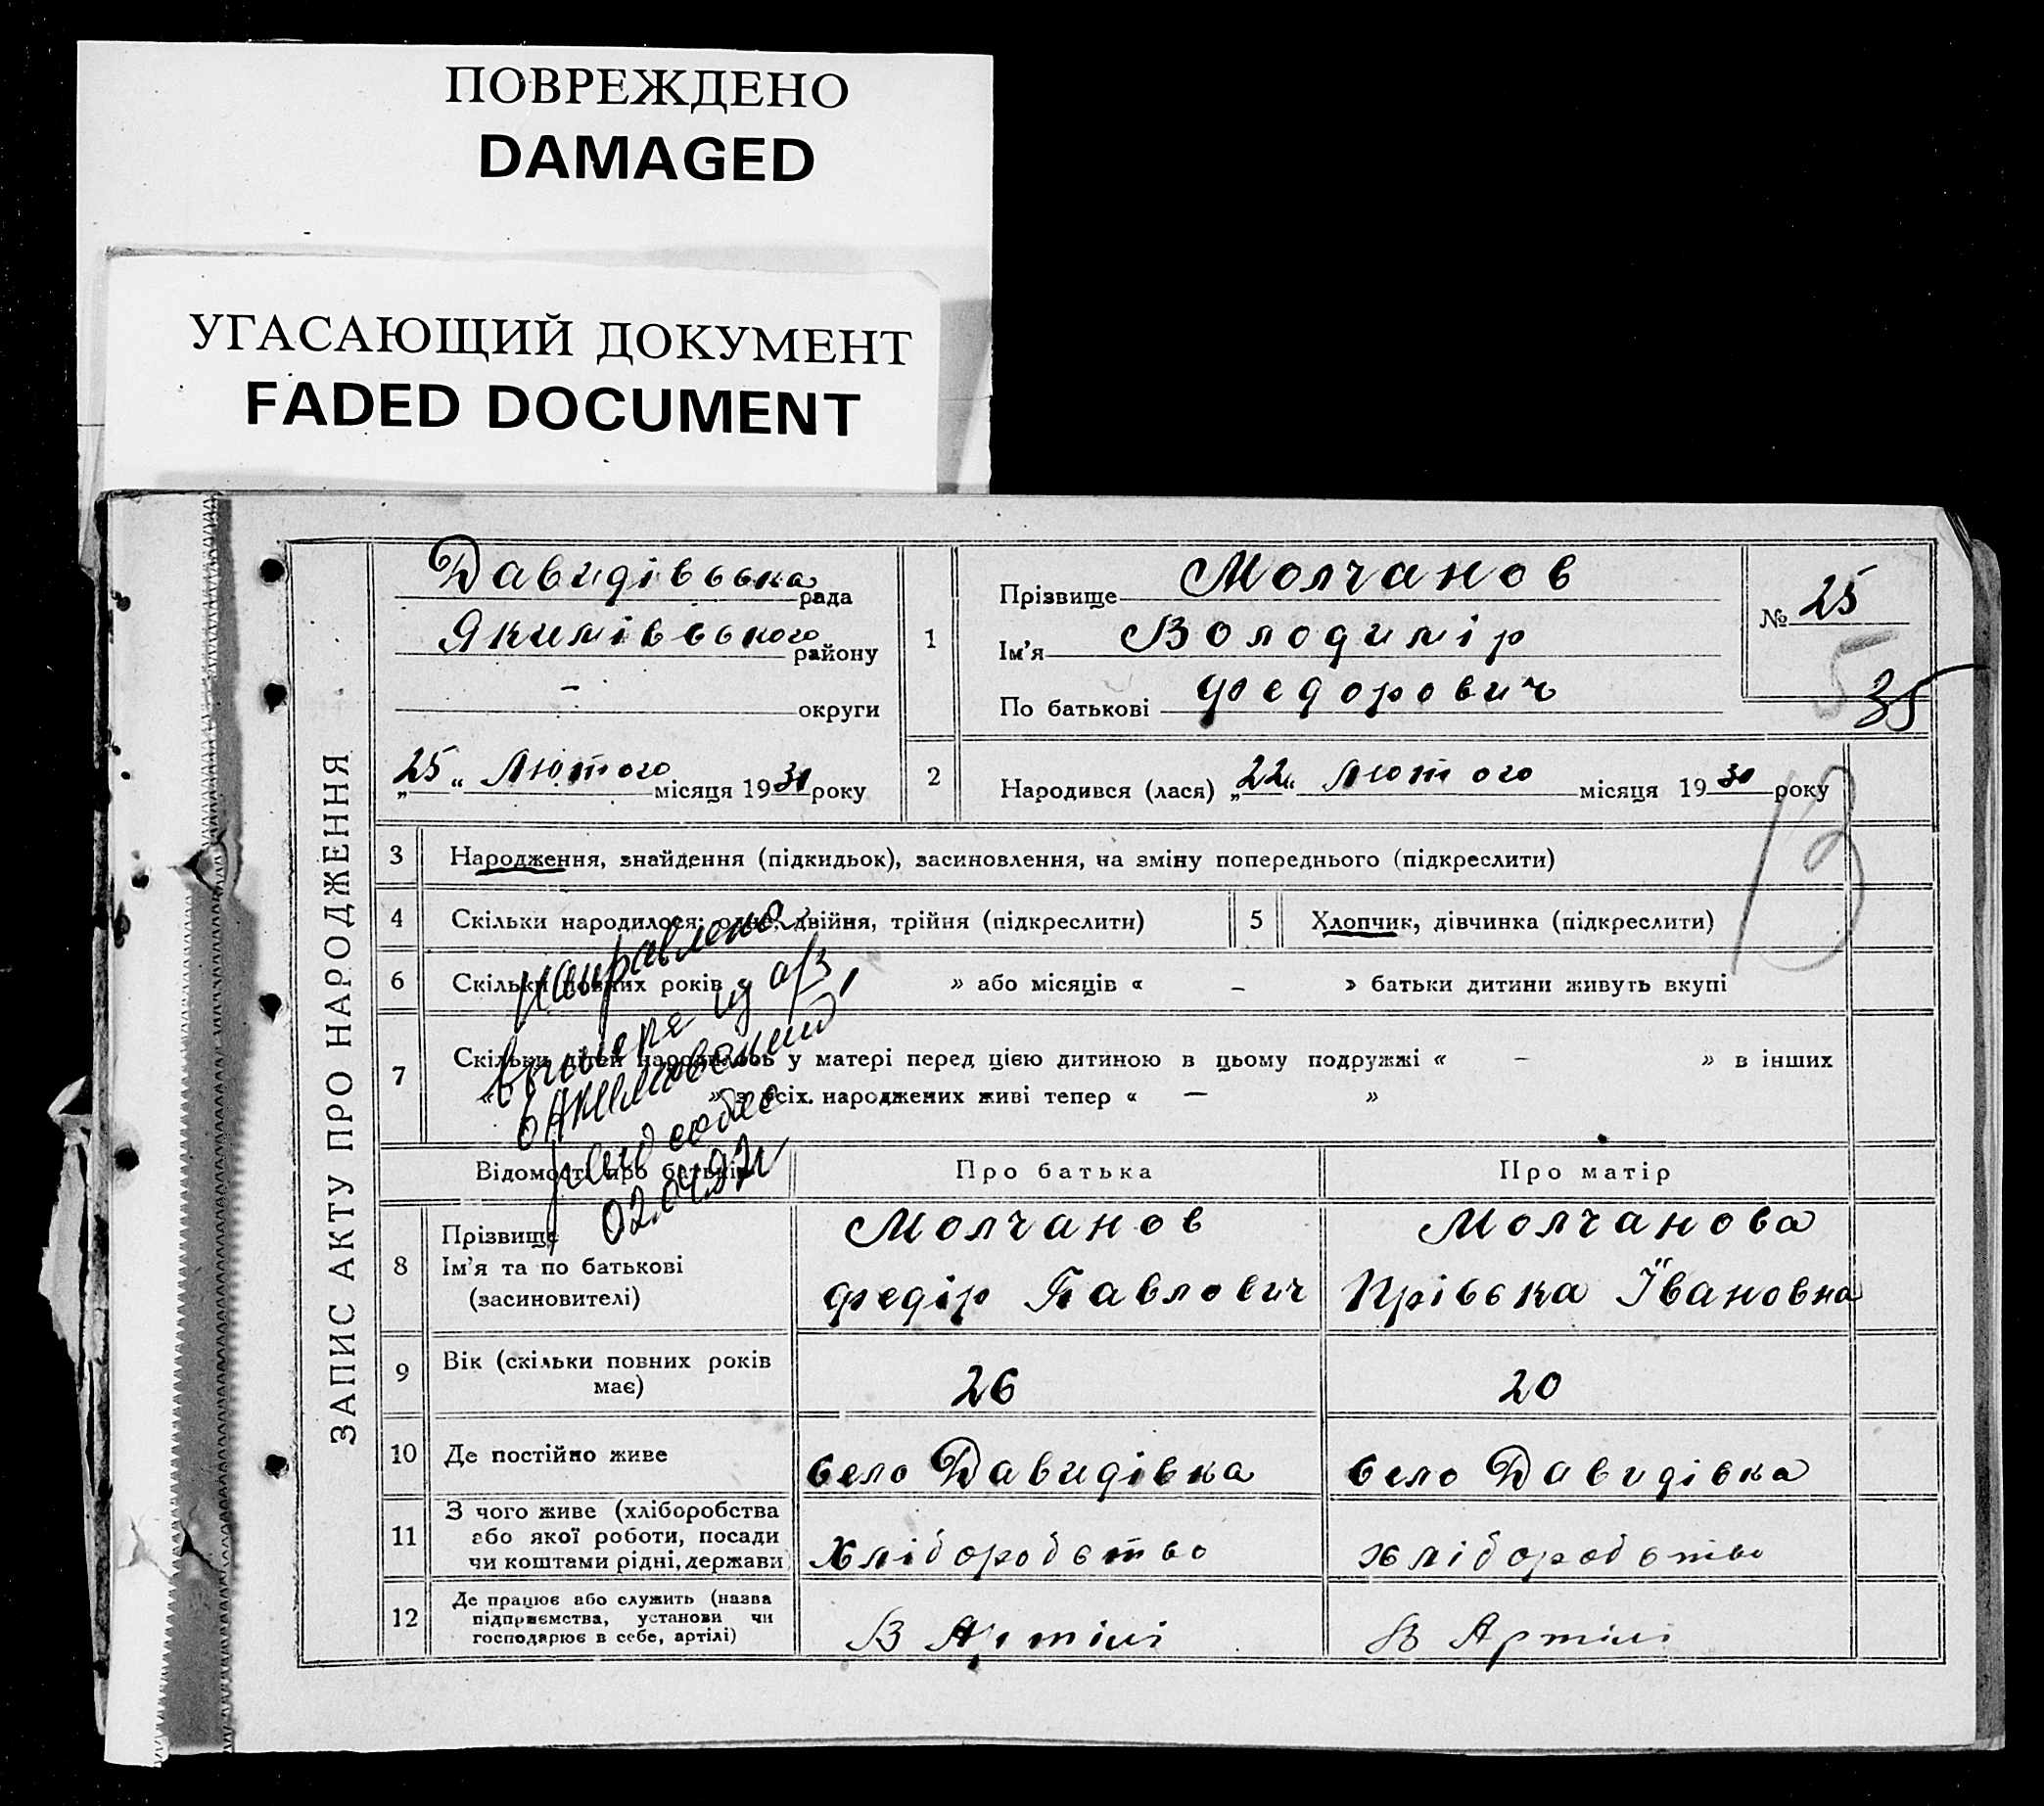 ПОВРЕЖДЕНО
DAMAGED
УГАСАЮЩИЙ ДОКУМЕНТ
FADED DOCUMENT
ЗАПИС АКТУ ПРО НАРОДЖЕННЯ
Давидівська рада
Якимівського району
— округи
„25“ Лютого місяця 1930 року
1
Прізвище Молчанов
Ім'я Володимір
По батькові Федорович
№ 25
5
35
2 Народився (лася) „22“ Лютого місяця 1930 року
13
3 Народження, знайдення (підкидьок), засиновлення, на зміну попереднього (підкреслити)
4 Скільки народилося: одне, двійня, трійня (підкреслити)
5 Хлопчик, дівчинка (підкреслити)
6 Скільки повних років » або місяців « — » батьки дитини живуть вкупі
7 Скільки дітей народилось у матері перед цією дитиною в цьому подружжі « — » в інших
« » з всіх народжених живі тепер « — »
направлено
из а/з
02.04.92г
Відомості про батьків
Про батька
Про матір
8 Прізвище
Ім'я та по батькові
(засиновителі)
Молчанов
Федір Павлович
Молчанова
Пріська Ївановна
9 Вік (скільки повних років
має)
26
20
10 Де постійно живе
село Давидівка
село Давидівка
11 З чого живе (хліборобства
або якої роботи, посади
чи коштами рідні, держави)
хліборобство
хліборобство
12 Де працює або служить (назва
підприємства, установи чи
господарює в себе, артілі)
В Артілі
В Артілі